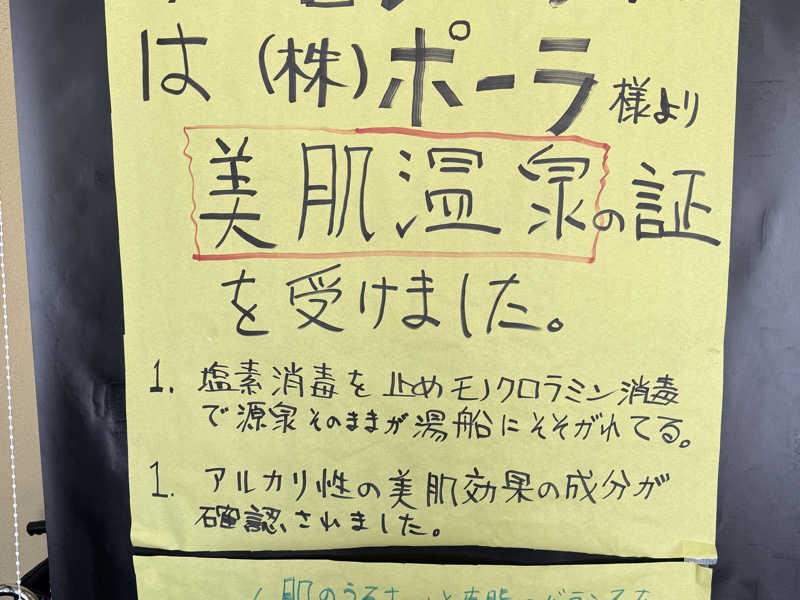 は(株)ポーラ様より
美肌温泉の証
を受けました。
1. 塩素消毒を止めモノクロラミン消毒
で源泉そのままが湯船にそそがれてる。
1. アルカリ性の美肌効果の成分が
確認されました。
肌のうるお